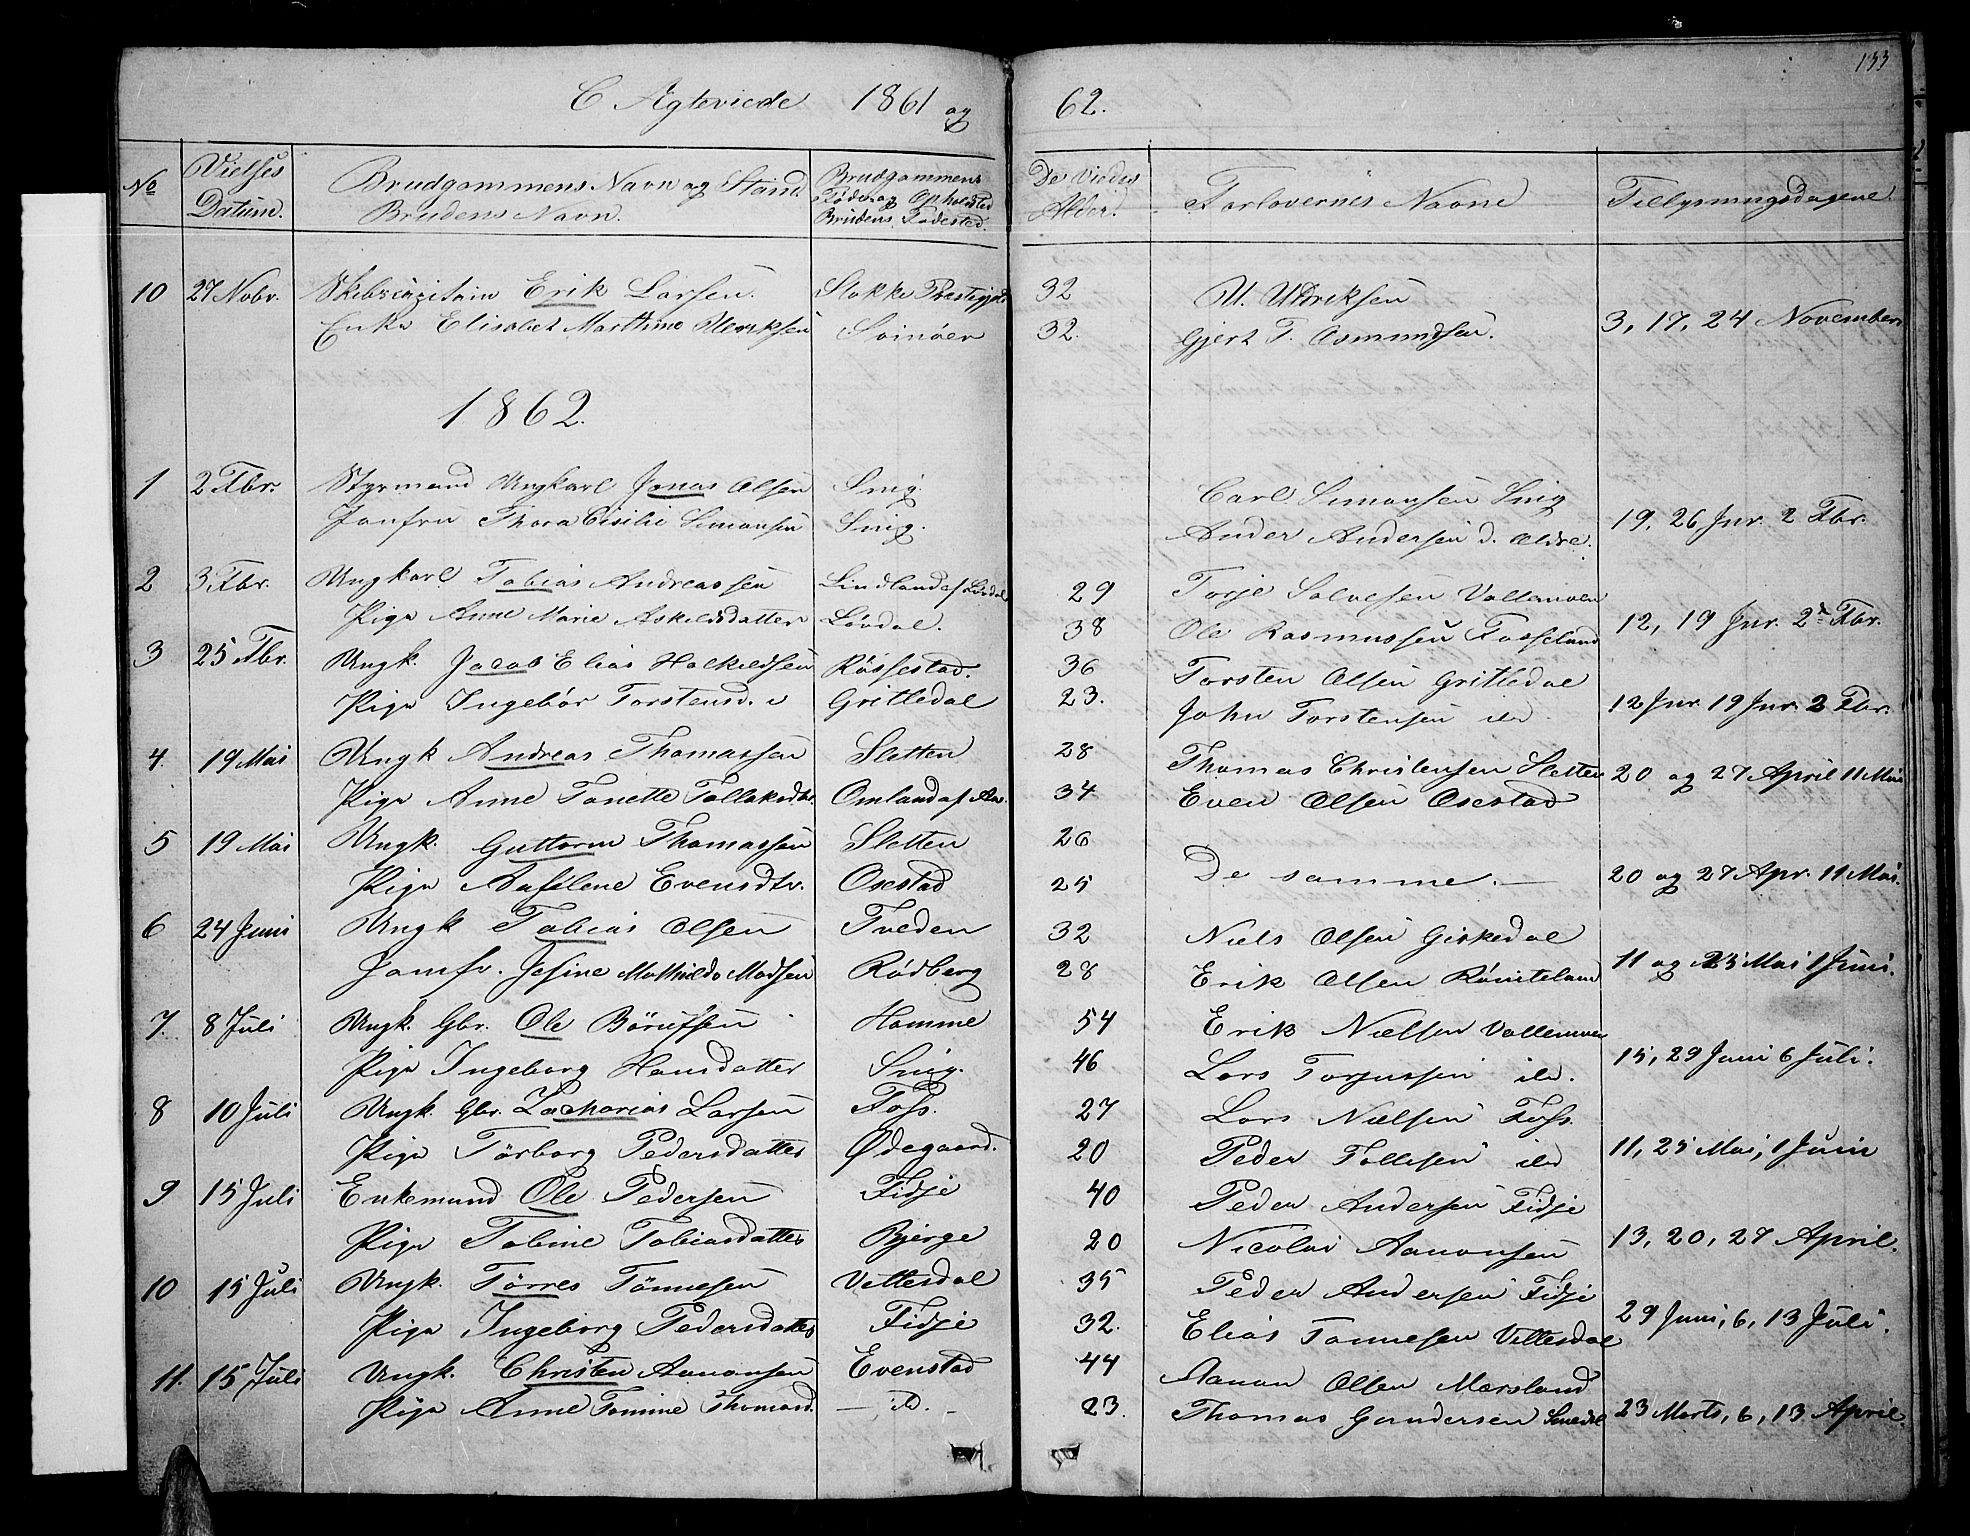 133
C Ægteviede 1861 og 62.
No Vielses Datum. Brudgommens Navn og Stand. Brudens Navn. Brudgommens Føde og Opholdsted Brudens Fødested. De Viedes Alder. Forlovernes Navne Tillysningsdagene
10 27 Nobr. Skibscapitain Erik Larsen. Stokke Præstegjeld 32 U. Uldriksen
Enke Elisabet Marthine Ulriksen Svinøer 32. Gjert T. Osmundsen. 3, 17, 24 November
1862.
1 2 Fbr. Styrmand Ungkarl Jonas Olsen Snig. Carl Simonsen Snig
Jomfru Thora Cisilie Simonsen Snig. Ander Andersen d. Ældre. 19, 26 Jnr. 2 Fbr.
2 3 Fbr. Ungkarl Tobias Andreassen Lindland af Lövdal 29 Torje Salvesen Vallemoen
Pige Anne Marie Askildsdatter Lövdal. 38 Ole Rasmussen Fosseland 12, 19 Jnr. 2 Fbr.
3 25 Fbr. Ungk. Jacob Elias Halkildsen Røssestad. 36 Torsten Olsen Gritledal
Pige Ingebør Torstensd. Gritledal 23. John Torstensen ibd 12 Jnr. 19 Jnr. 2 Fbr.
4. 19 Mai Ungk Andreas Thomassen Sletten 28 Thomas Christensen Sletten
Pige Anne Tonette Tollaksdtr. Omland af Aas. 34 Even Olsen Osestad 20 og 27 April 11 Mai
5 19 Mai Ungk. Guttorm Thomassen Sletten 26
Pige Aaselene Evensdtr. Osestad 25 De samme. 20 og 27 Apr. 11 Mai.
6 24 Juni Ungk Tobias Olsen Tveden 32 Niels Olsen Giskedal
Jomfr. Josine Mathilde Madsen Rødberg 28 Erik Olsen 11 og 25 Mai 1 Juni.
7. 8 Juli Ungk. Gbr. Ole Börufsen Homme 54 Erik Nielsen Vallemoen
Pige Ingeborg Hansdatter Snig. 46 Lars Torjussen ibd. 15, 29 Juni 6 Juli.
8 10 Juli Ungk. Gbr. Zacharias Larsen Foss. 27 Lars Nielsen Foss
Pige Törborg Pedersdatter Ødegaard. 20 Peder Tollisen ibd 11, 25 Mai, 1 Juni
9 15 Juli Enkemand Ole Pedersen Fidje 40 Peder Andersen Fidje
Pige Tobine Tobiasdatter Bjerge 20 Nicolai Aanonsen 13, 20, 27 April.
10 15 Juli Ungk. Törres Tönnesen Vittesdal 35 Peder Andersen Fidje
Pige Ingeborg Pedersdatter Fidje 32. Elias Tönnesen Vittesdal 29 Juni, 6, 13 Juli.
11. 15 Juli Ungk. Christen Aanonsen Evenstad 44 Aanon Olsen Mørsland
Pige Anne Tomine Thomasd. — D. — 23. Thomas Gundersen Smedal 23 Marts, 6, 13 April.